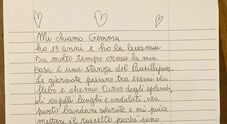 Mi chiamo Gemma
ho 13 anni e ho la leucemia
Da molto tempo ormai la mia
casa è una stanza del Pausilipon.
Le giornate passano tra esami vari
flebo e chemio. Avevo degli splendidi
capelli lunghi e ondulati, ora
porto bandane colorate e mi piace
mettere il rossetto perché sono